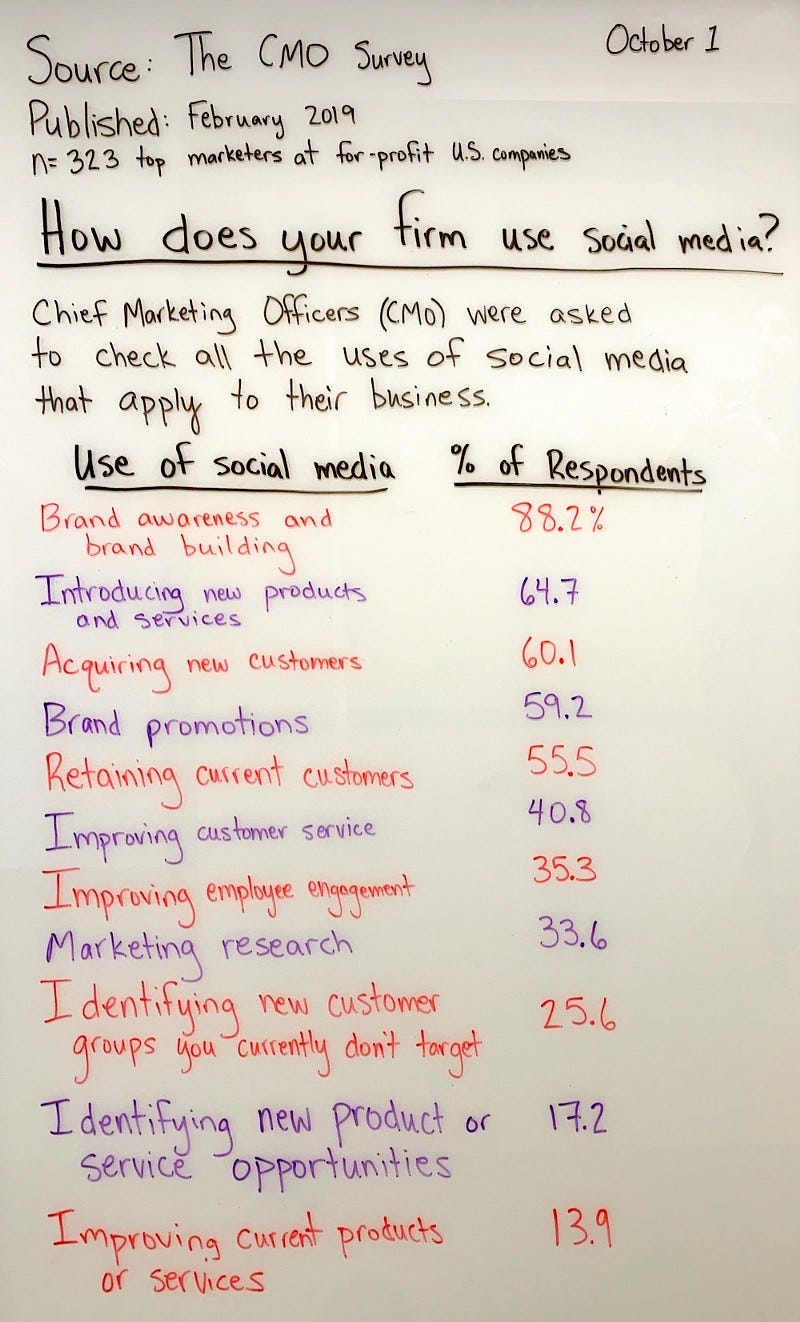 Source: The CMO Survey
October 1
Published: February 2019
n=323 top marketers at for-profit U.S. companies
How does your firm use social media?
Chief Marketing Officers (CMO) were asked
to check all the uses of social media
that apply to their business.
Use of social media % of Respondents
Brand awareness and 88.2%
brand building
Introducing new products 64.7
and services
Acquiring new customers 60.1
Brand promotions 59.2
Retaining current customers 55.5
Improving customer service 40.8
Improving employee engagement 35.3
Marketing research 33.6
Identifying new customer 25.6
groups you currently don't target
Identifying new product or 17.2
service opportunities
Improving current products 13.9
or services